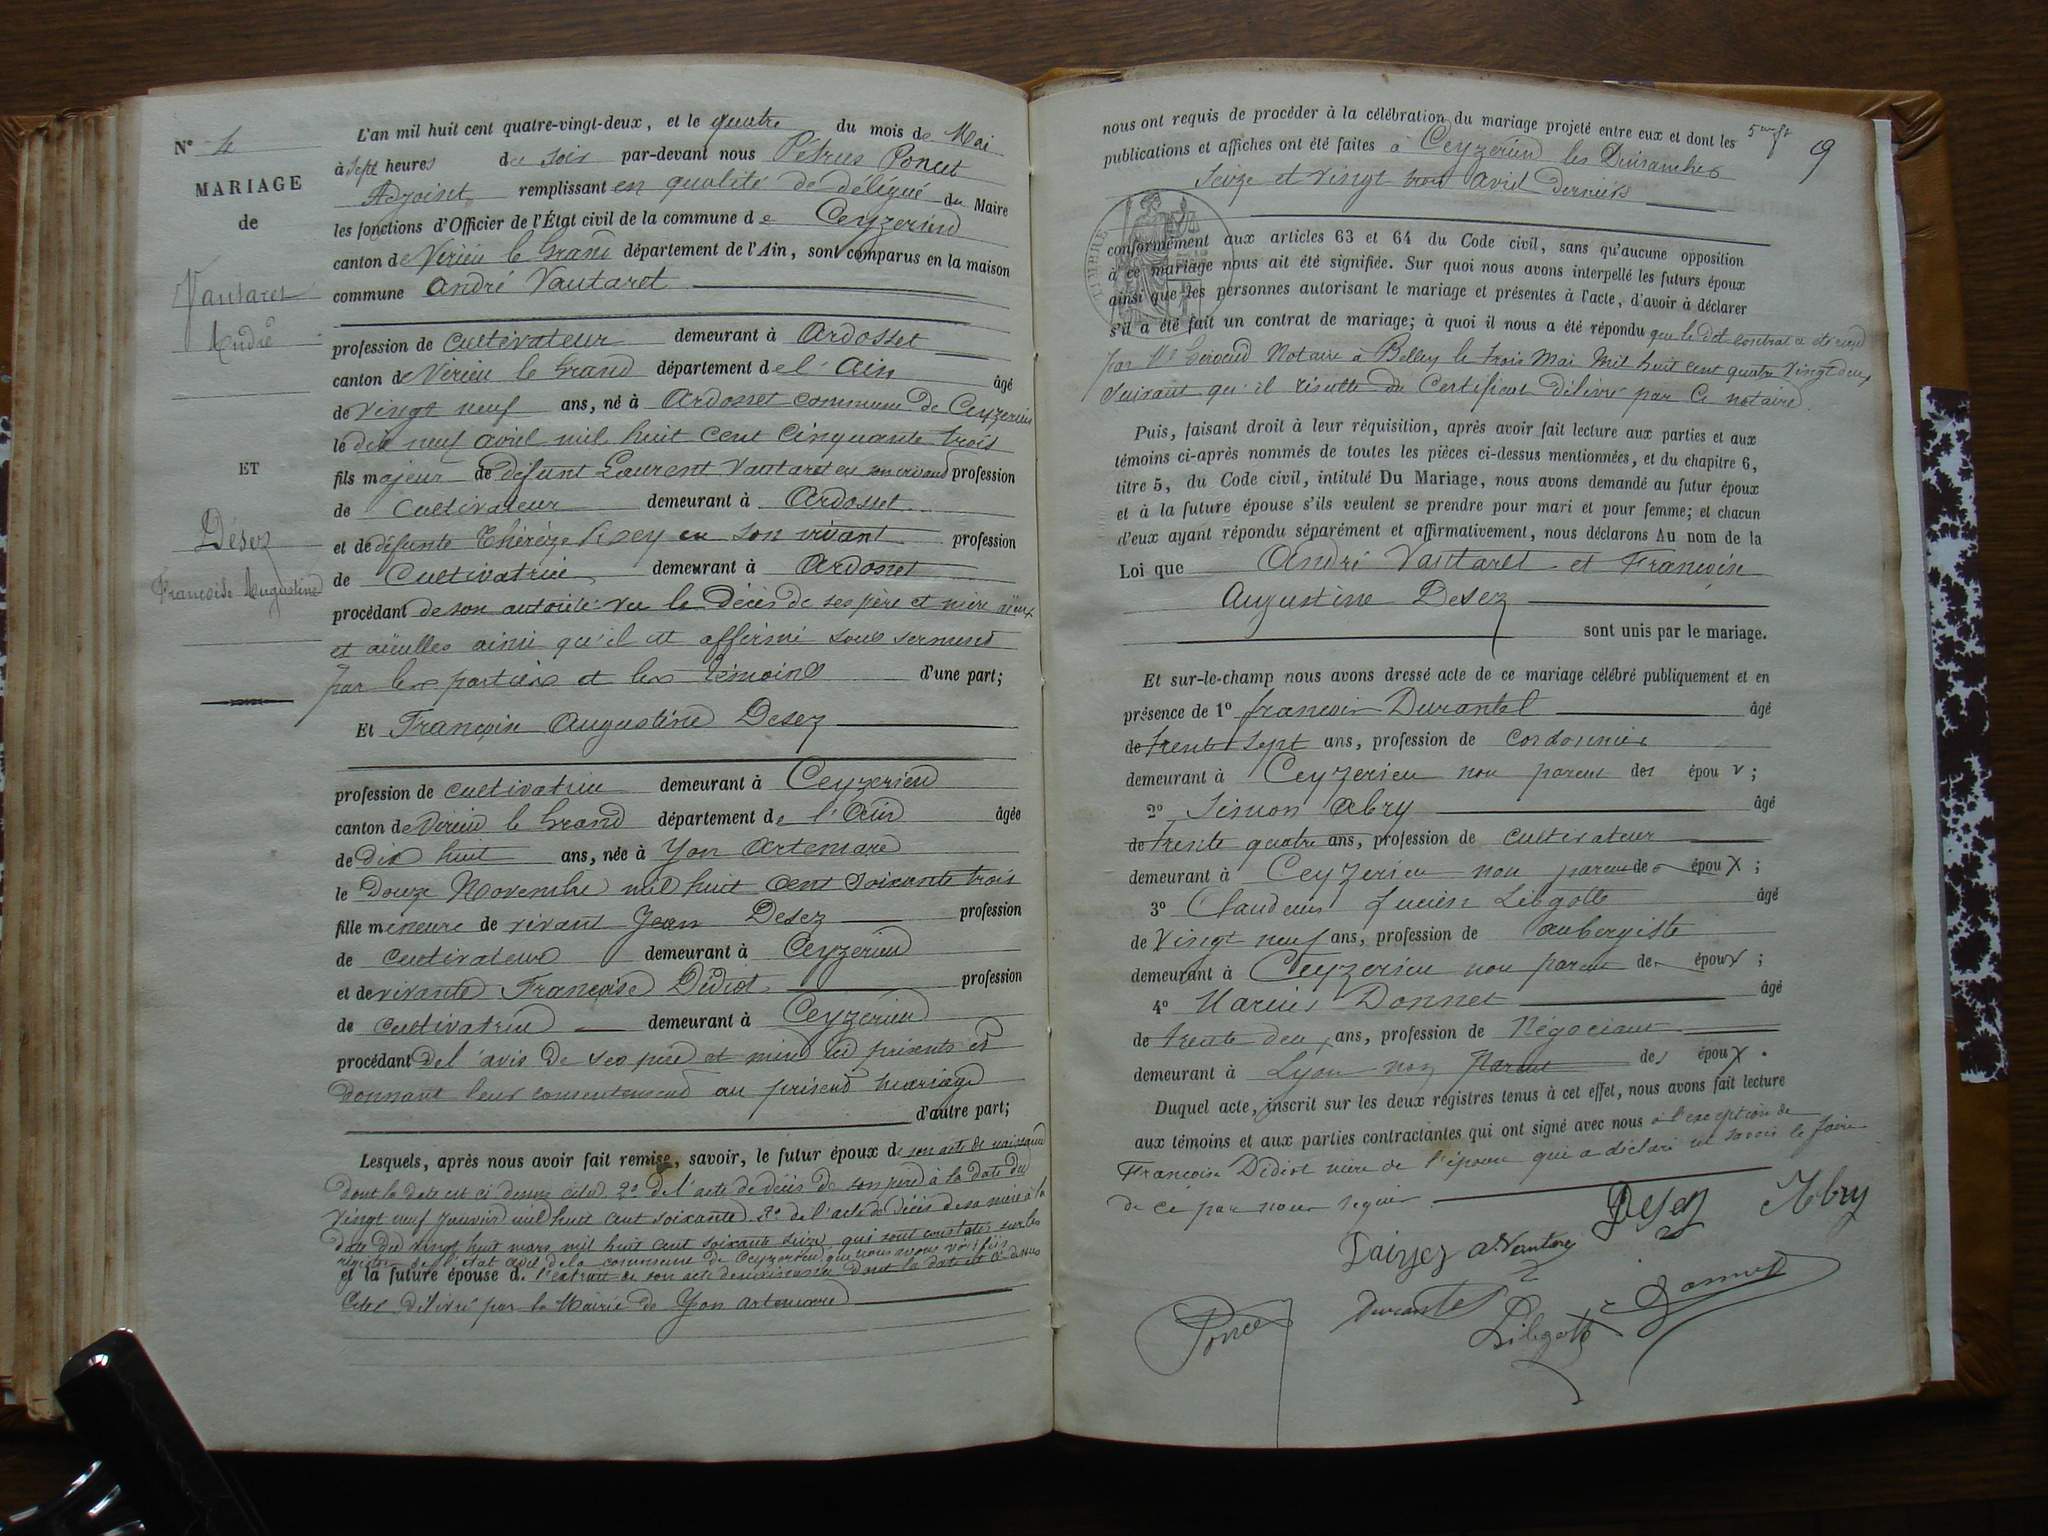 N° 4
MARIAGE
de
Vautaret
André
ET
Désez
Françoise Augustine
L'an mil huit cent quatre-vingt-deux, et le quatre du mois de Mai
à sept heures du soir par-devant nous Pétrus Poncet
Adjoint remplissant en qualité de délégué du Maire
les fonctions d'Officier de l'État civil de la commune de Ceyzerieu
canton de Virieu le Grand département de l'Ain, sont comparus en la maison
commune André Vautaret
profession de cultivateur demeurant à Ardosset
canton de Virieu le Grand département de l'Ain âgé
de vingt neuf ans, né à Ardosset commune de Ceyzerieu
le dix neuf avril mil huit cent cinquante trois
fils majeur de défunt Laurent Vautaret en son vivant profession
de Cultivateur demeurant à Ardosset
et de défunte Thérèze Rey en son vivant profession
de Cultivatrice demeurant à Ardosset
procédant de son autorité vu le Décès de ses père et mère aïeux
et aïeulles ainsi qu'il est affirmé sous serment
par les parties et les témoins d'une part;
Et Françoise Augustine Desez
profession de cultivatrice demeurant à Ceyzerieu
canton de Virieu le Grand département de l'Ain âgée
de dix huit ans, née à Yon Artemare
le Douze Novembre mil huit cent soixante trois
fille mineure de vivant Jean Desez profession
de cultivateur demeurant à Ceyzerieu
et de vivante Françoise Didiot profession
de cultivatrice demeurant à Ceyzerieu
procédant de l'avis de ses père et mère ici présents et
donnant leur consentement au présent mariage
d'autre part;
Lesquels, après nous avoir fait remise, savoir, le futur époux de son acte de naissance
dont la date est ci dessus citée 2° de l'acte de décès de son père à la date du
vingt neuf janvier mil huit cent soixante 3° de l'acte de décès de sa mère à la
date du vingt huit mars mil huit cent soixante seize qui sont constatés sur les
registres de l'état civil de la commune de Ceyzerieu que nous avons vérifiés
et la future épouse d. l'extrait de son acte de naissance dont la date est ci dessus
citée délivré par la Mairie de Yon artemare
9
nous ont requis de procéder à la célébration du mariage projeté entre eux et dont les
publications et affiches ont été faites à Ceyzerieu les Dimanches
Seize et vingt trois avril derniers
TIMBRE
conformément aux articles 63 et 64 du Code civil, sans qu'aucune opposition
à ce mariage nous ait été signifiée. Sur quoi nous avons interpellé les futurs époux
ainsi que les personnes autorisant le mariage et présentes à l'acte, d'avoir à déclarer
s'il a été fait un contrat de mariage; à quoi il nous a été répondu que le dit contrat a été
par Me Notaire à Belley le trois Mai Mil huit cent quatre Vingt deux
suivant qu'il résulte du Certificat délivré par ce notaire.
Puis, faisant droit à leur réquisition, après avoir fait lecture aux parties et aux
témoins ci-après nommés de toutes les pièces ci-dessus mentionnées, et du chapitre 6,
titre 5, du Code civil, intitulé Du Mariage, nous avons demandé au futur époux
et à la future épouse s'ils veulent se prendre pour mari et pour femme; et chacun
d'eux ayant répondu séparément et affirmativement, nous déclarons Au nom de la
Loi que André Vautaret et Françoise
Augustine Desez
sont unis par le mariage.
Et sur-le-champ nous avons dressé acte de ce mariage célébré publiquement et en
présence de 1° françois Durantel âgé
de trente sept ans, profession de cordonnier
demeurant à Ceyzerieu non parent des époux;
2° Simon Abry âgé
de trente quatre ans, profession de cultivateur
demeurant à Ceyzerieu non parent des époux;
3° Claudius Lucien Libgott âgé
de Vingt neuf ans, profession de aubergiste
demeurant à Ceyzerieu non parent des époux;
4° Marius Donnet âgé
de trente deux ans, profession de Négociant
demeurant à Lyon non Parent des époux.
Duquel acte, inscrit sur les deux registres tenus à cet effet, nous avons fait lecture
aux témoins et aux parties contractantes qui ont signé avec nous à l'exception de
Françoise Didiot mère de l'épouse qui a déclaré ne savoir le faire
de ce par nous requise
Desez Abry
A. Vautaret
Durantel Donnet
Poncet Libgott